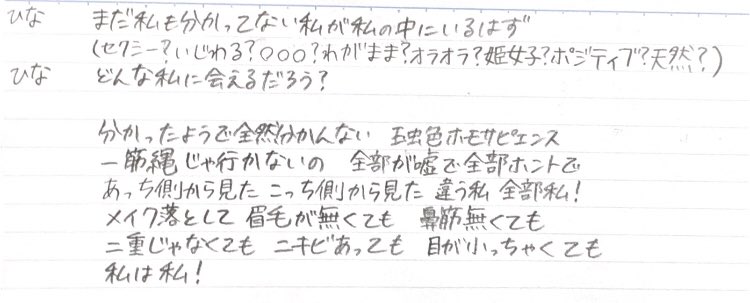 ひな まだ私も分かってない私が私の中にいるはず
(セクシー?いじわる?○○○?わがまま?オラオラ?姫女子?ポジティブ?天然?)
ひな どんな私に会えるだろう?
分かったようで全然分かんない 玉虫色ホモサピエンス
一筋縄じゃ行かないの 全部が嘘で全部ホントで
あっち側から見た こっち側から見た 違う私 全部私!
メイク落として 眉毛が無くても 鼻筋無くても
二重じゃなくても ニキビあっても 目が小っちゃくても
私は私!